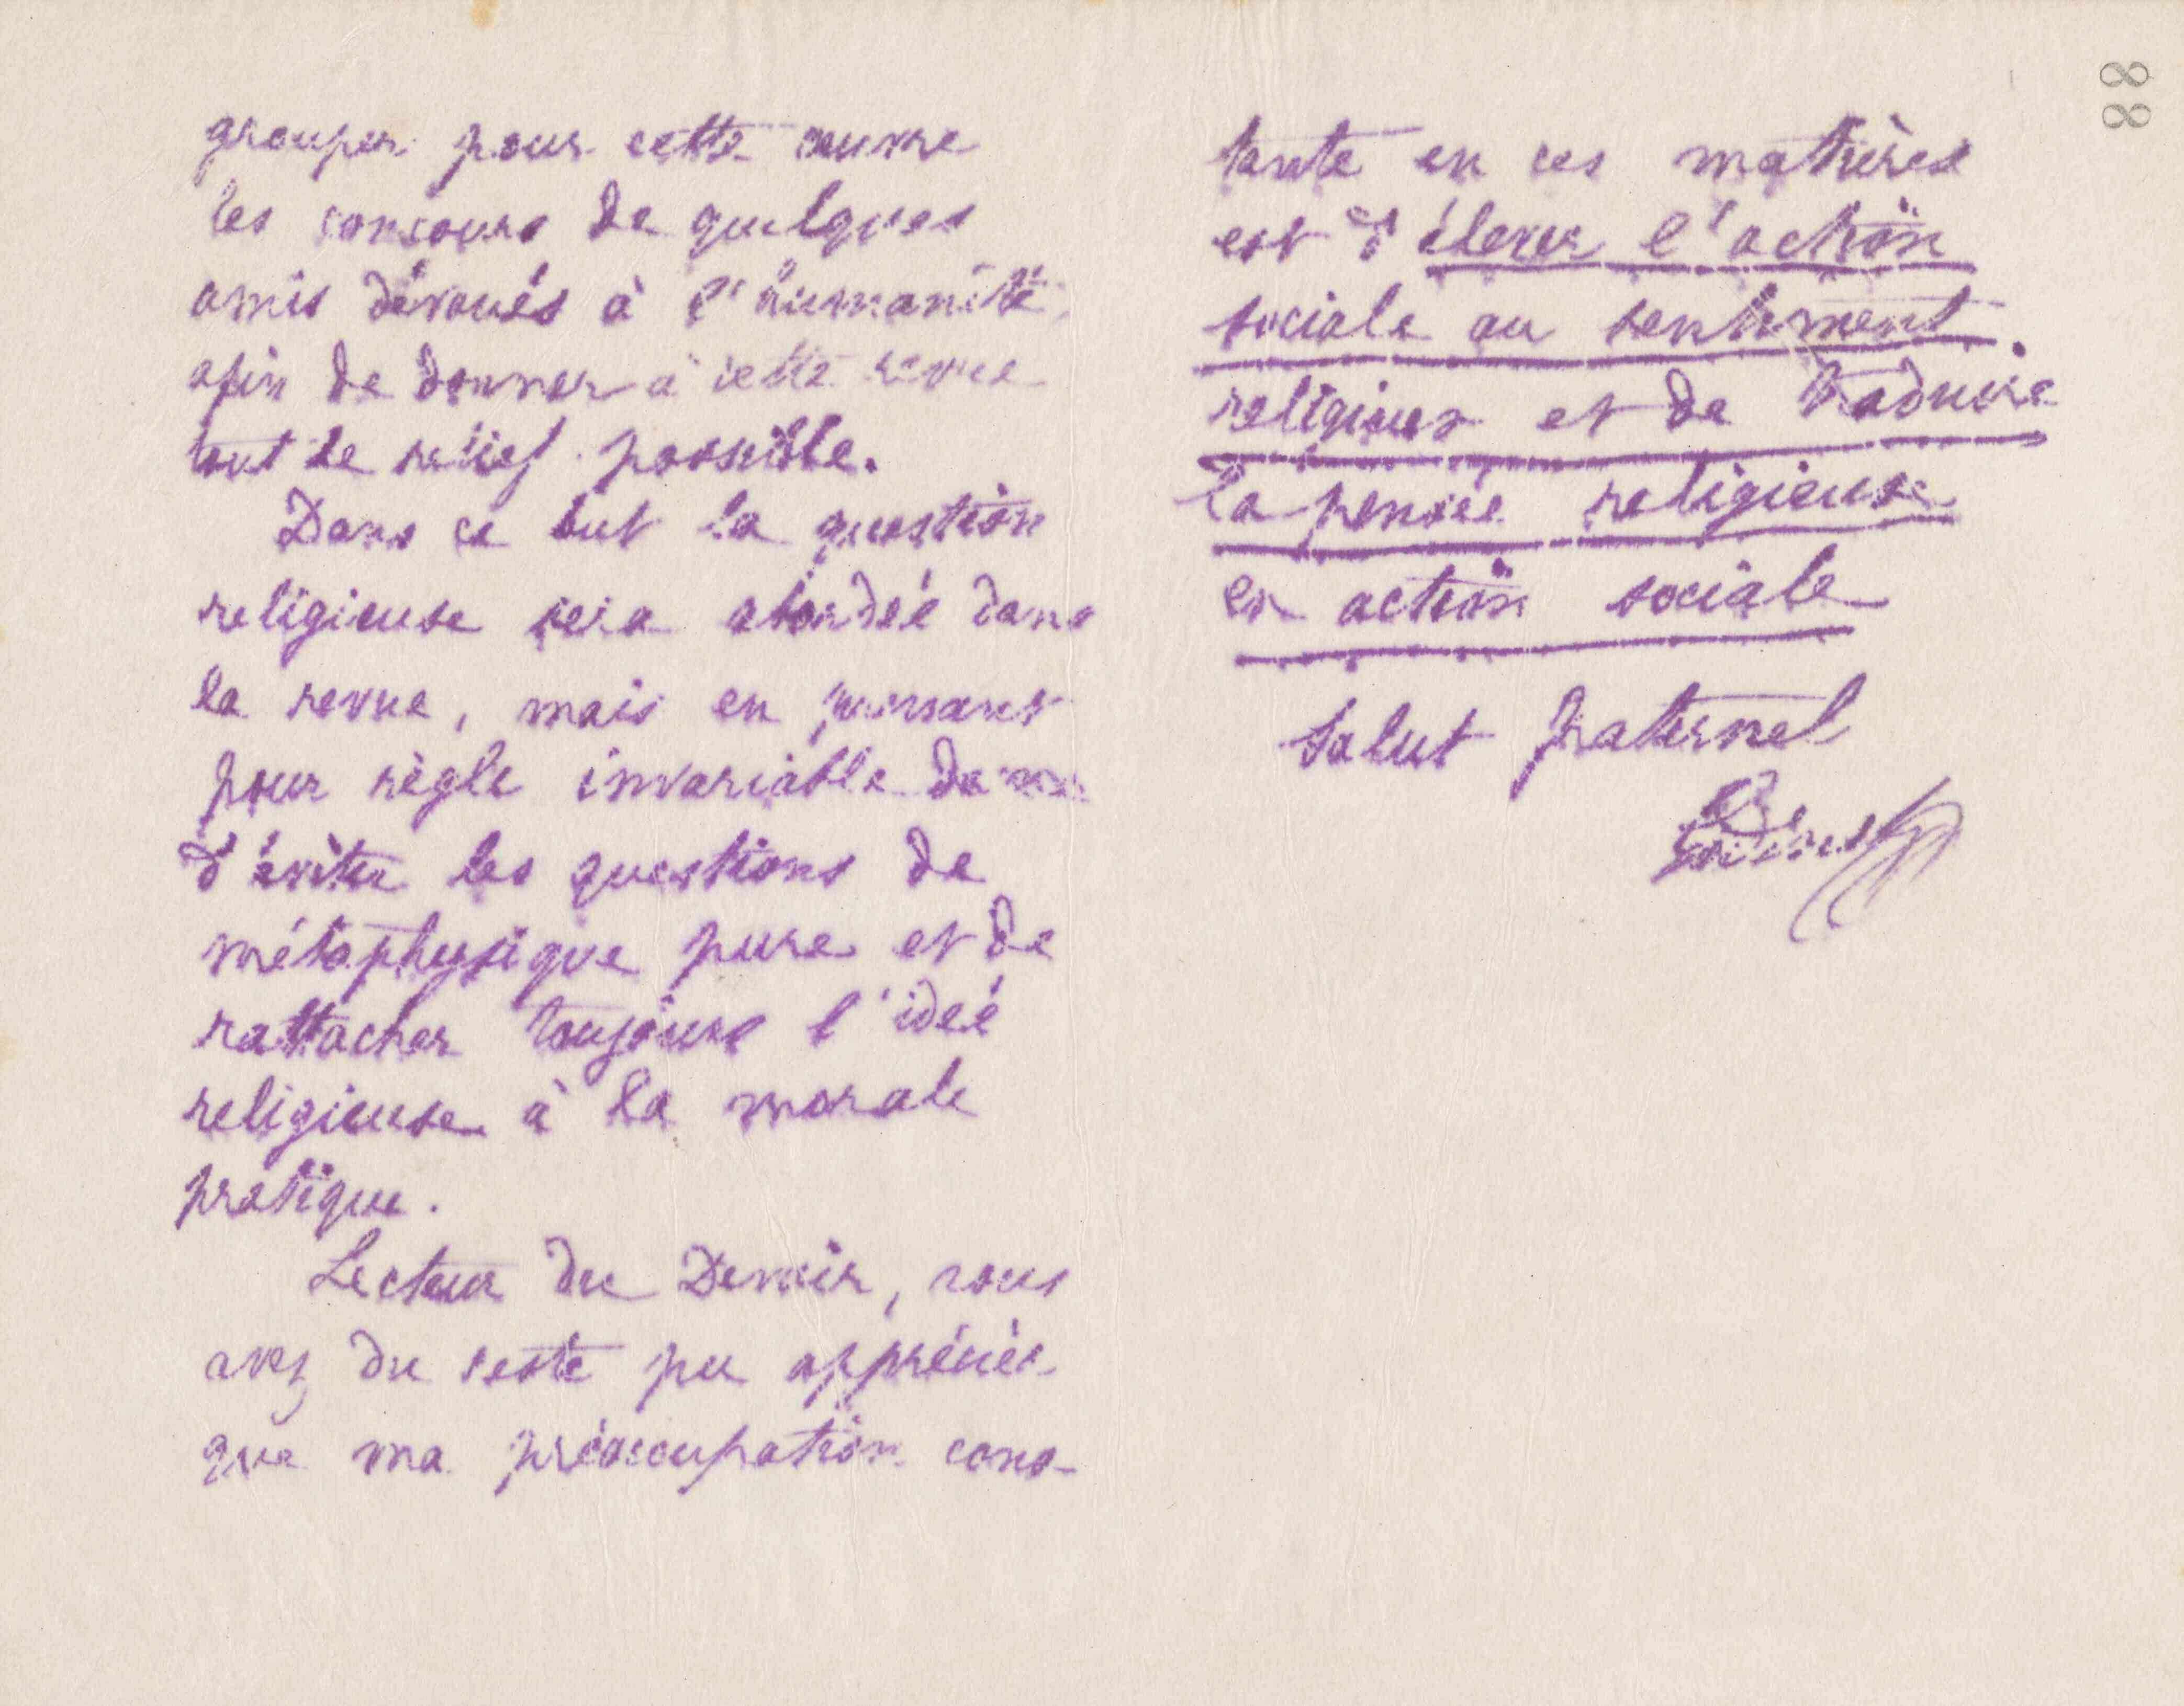 grouper pour cette œuvre
les concours de quelques
amis dévoués à l'humanité
afin de donner à cette revue
tout le relief possible.
Dans ce but la question
religieuse sera abordée dans
la revue, mais en prenant
pour règle invariable
d'éviter les questions de
métaphysique pure et de
rattacher toujours l'idée
religieuse à la morale
pratique.
Lecteur du Devoir, vous
avez du reste pu apprécier
que ma préoccupation cons-
88
tante en ces matières
est d'élever l'action
sociale au sentiment
religieux et de traduire
la pensée religieuse
en action sociale
Salut fraternel
Godin